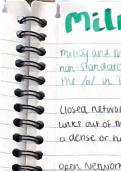 Miln
Milroy and M
non-standard
the /a/ in '
Closed networ
links out of m
a dense or h
open network